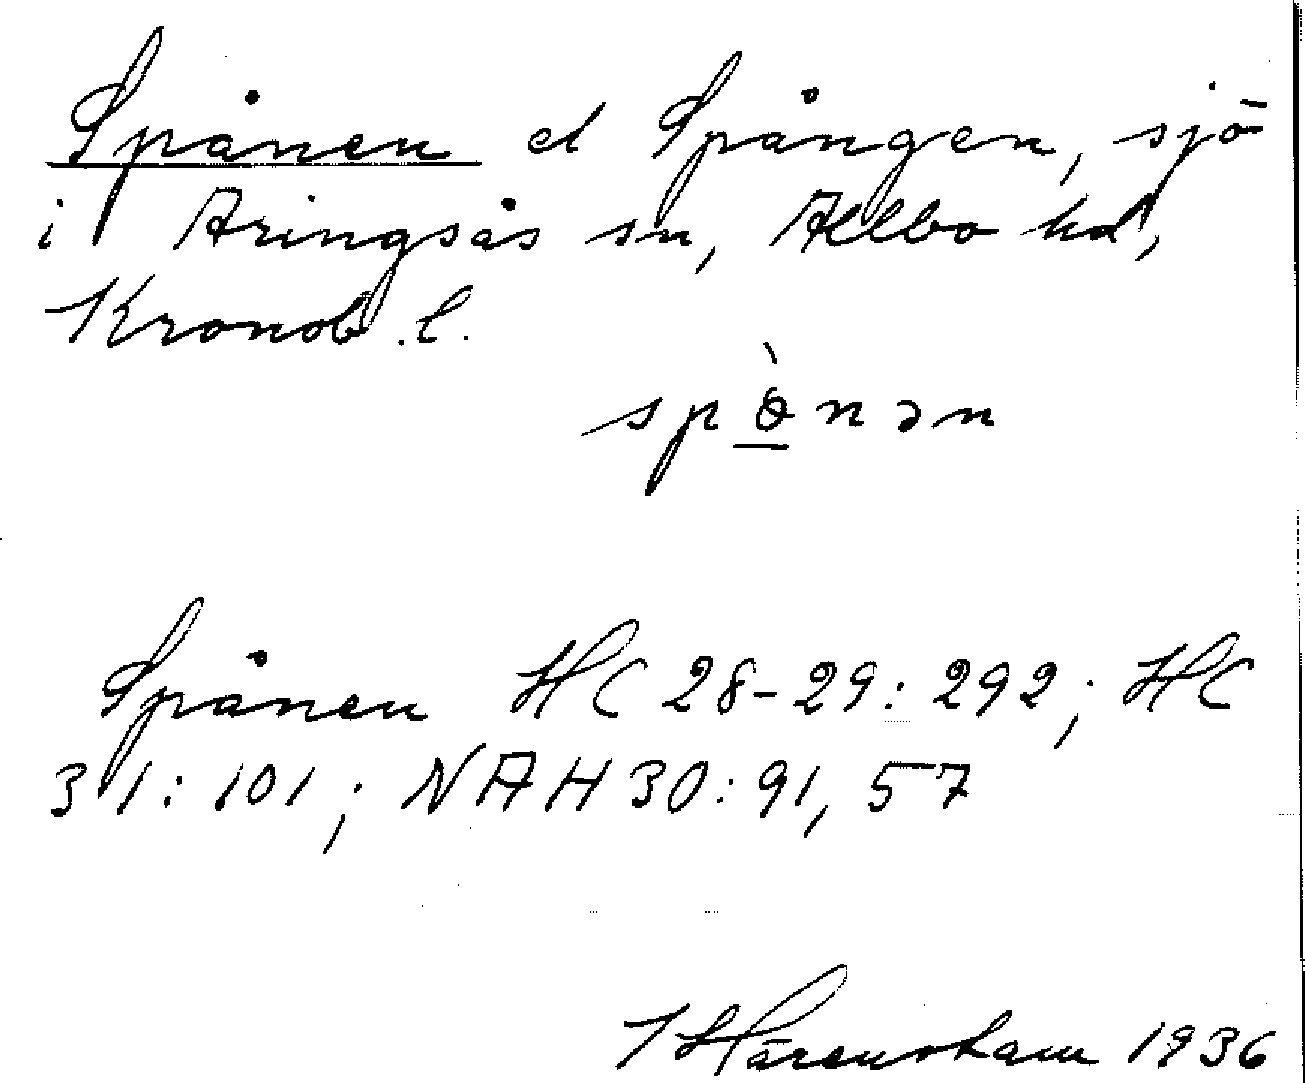 Spånen el Spången, sjö
i Aringsås sn, Allbo hd,
Kronob. l.
spɵ̀nən
Spånen HC 28-29: 292; HC
31: 101; NAH 30: 91, 57
1936